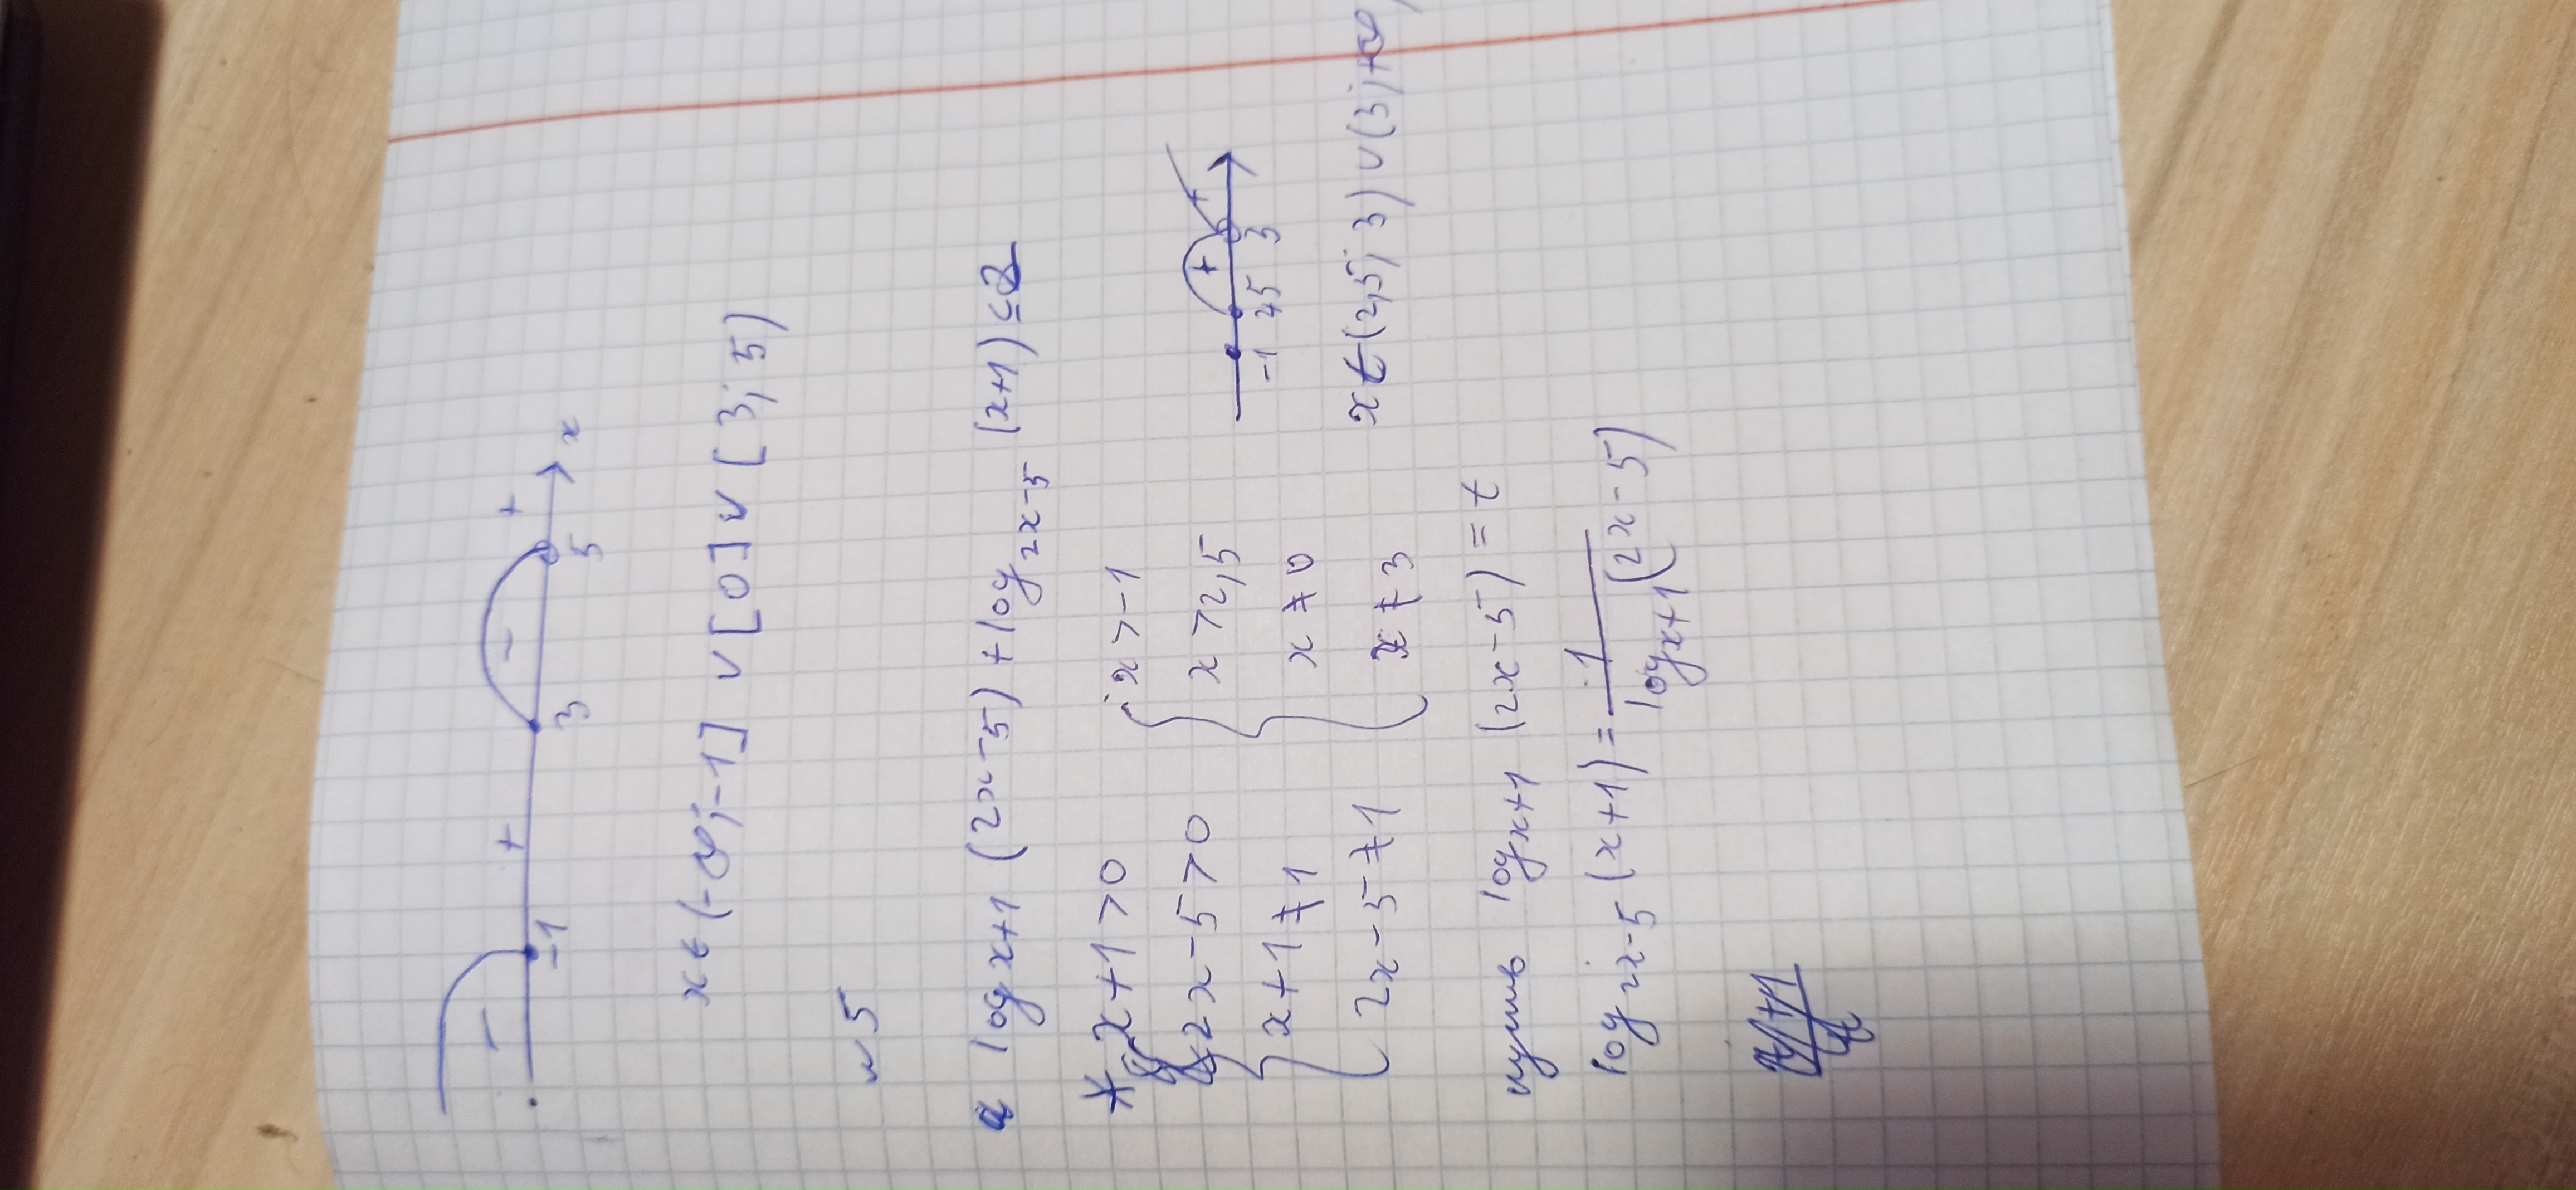 - + - +
-1 3 5 x
x ∈ (-∞; -1] ∪ [0] ∪ [3; 5)
№5
a log x+1 (2x-5) + log 2x-5 (x+1) ≤ 2
* x+1>0 x>-1
2x-5>0 x>2,5 + +
x+1≠1 x≠0 -1 2,5 3
2x-5≠1 x≠3 x ∈ (2,5; 3) ∪ (3; +∞)
пусть log x+1 (2x-5) = t
log 2x-5 (x+1) = 1 / log x+1 (2x-5)